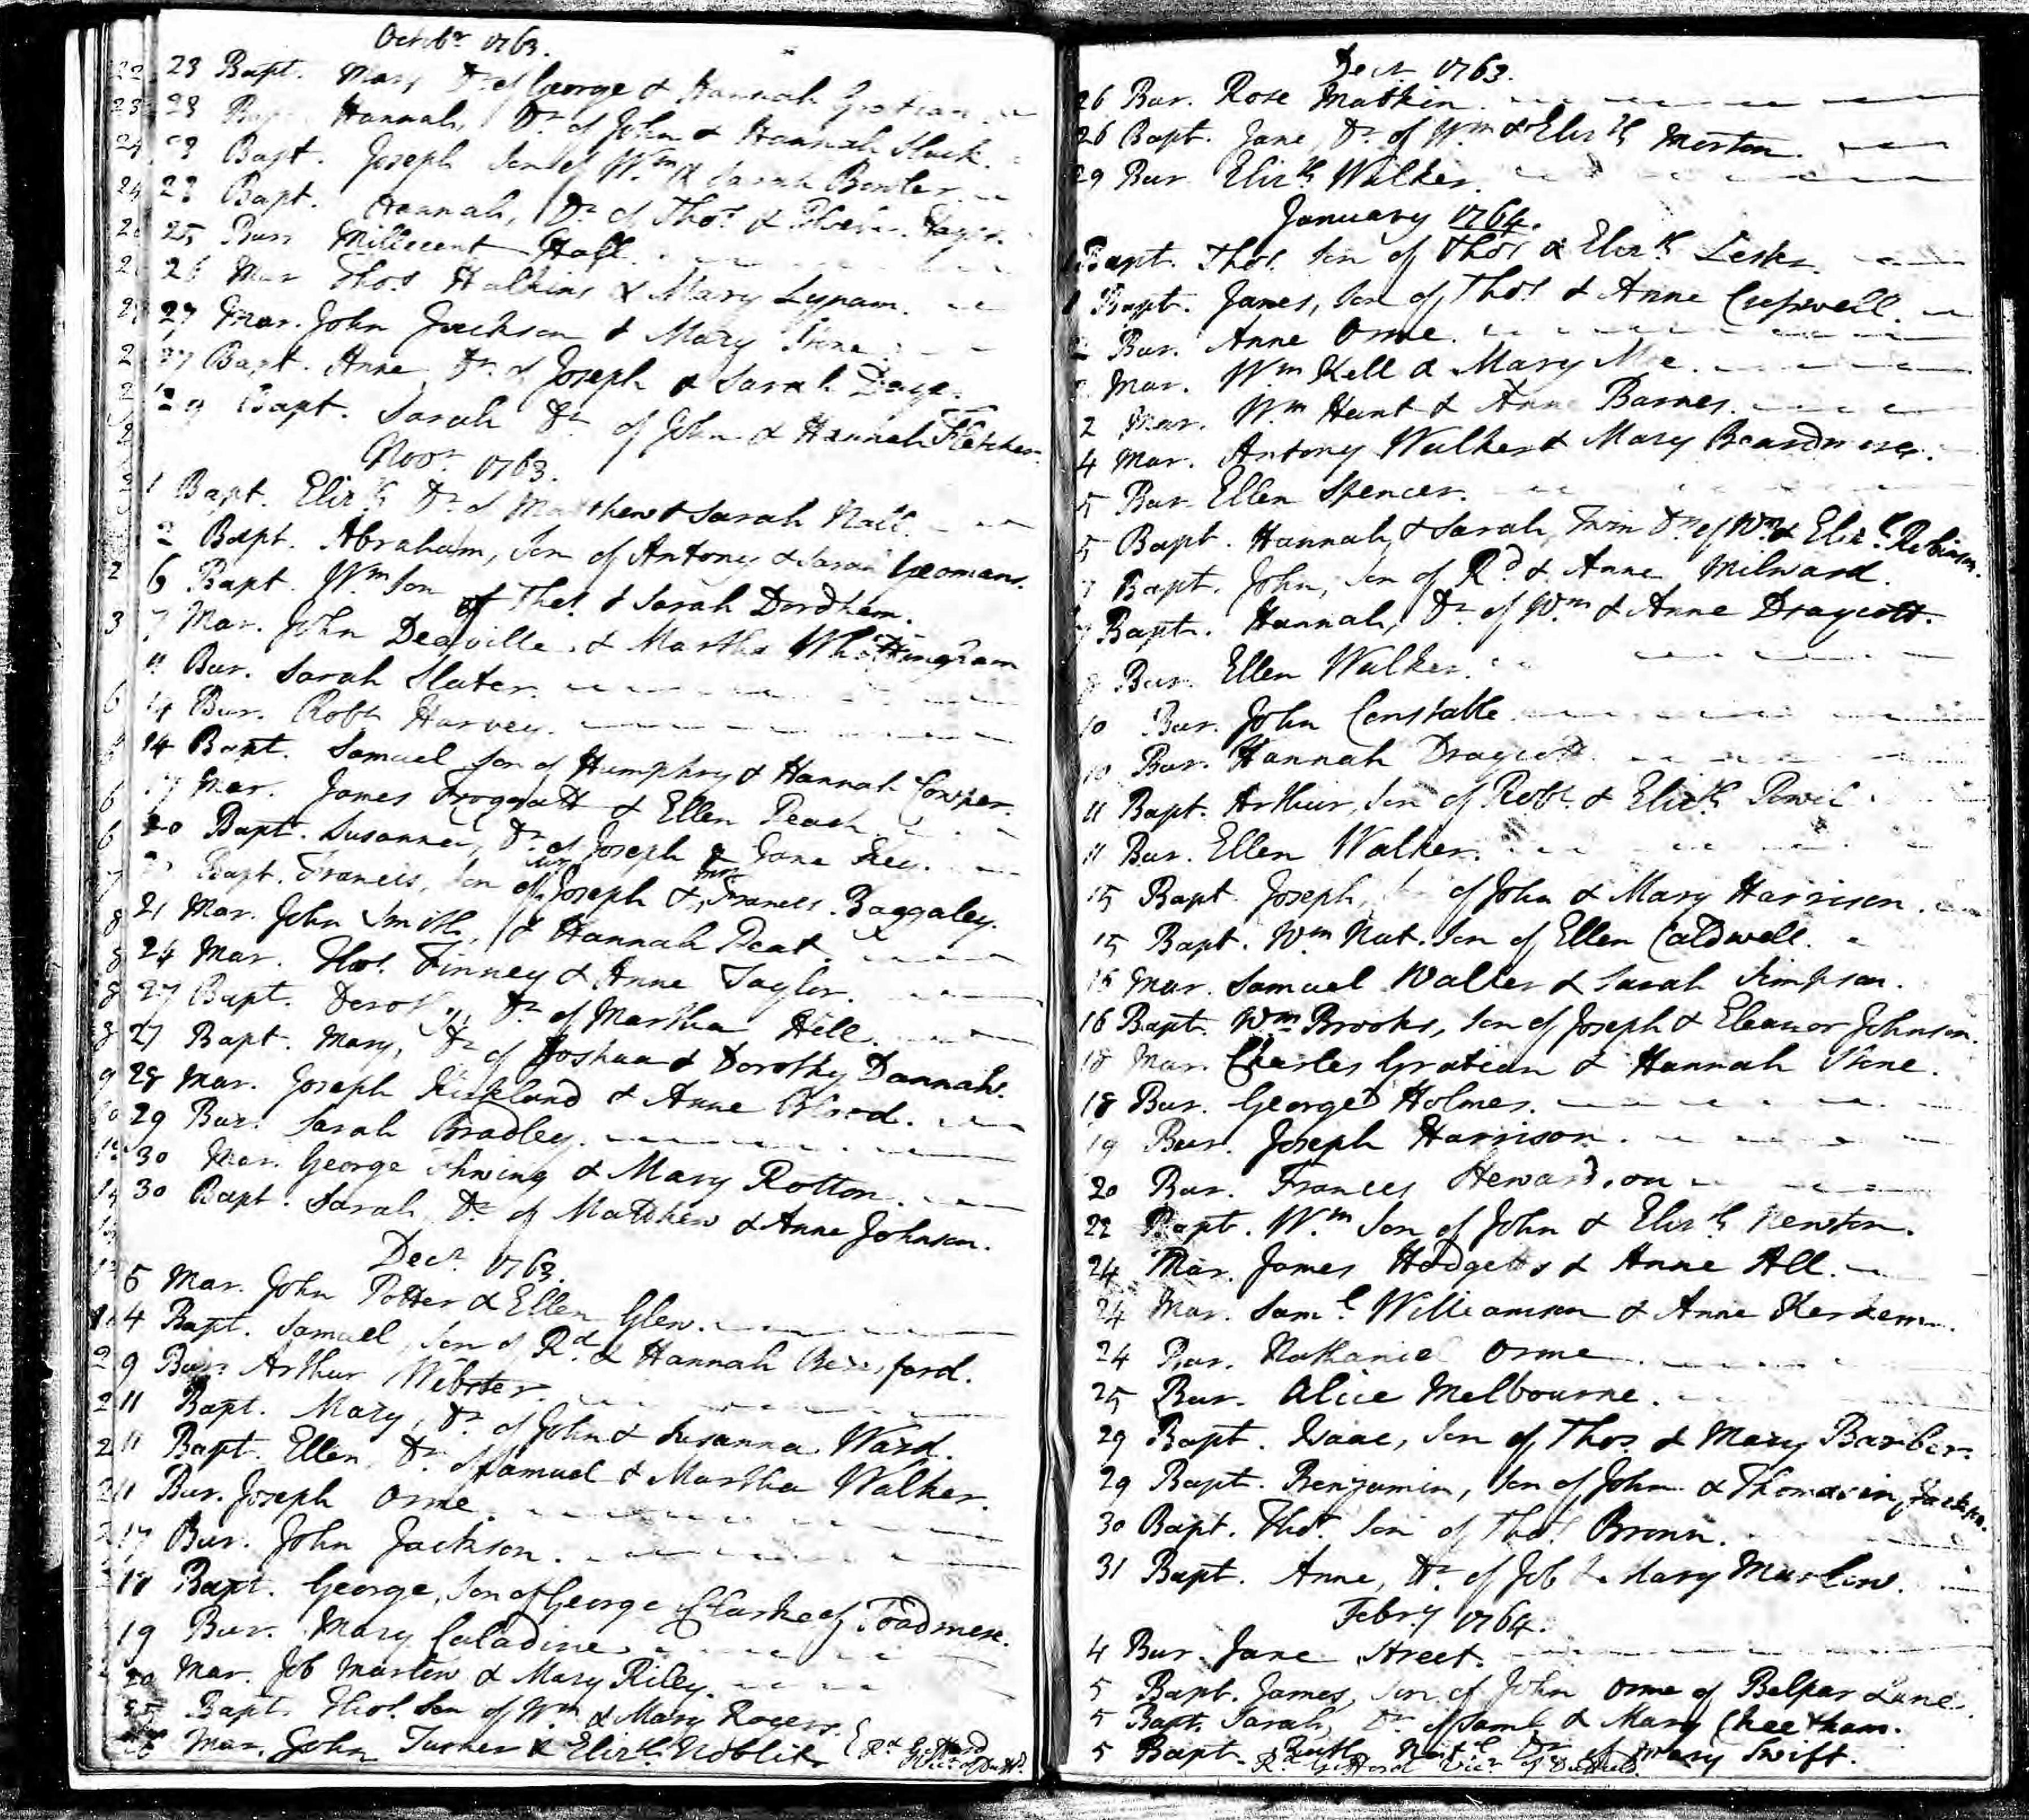 Octobr 1763.
23 Bapt. Mary Dr of George & Hannah Gratian.
23 Bapt. Hannah, Dr of John & Hannah Slack.
23 Bapt. Joseph Son of Wm & Sarah Bowler.
23 Bapt. Hannah, Dr of Thos &
25 Bur. Millecent Hall.
26 Mar Thos Halkins & Mary Lynam.
27 Mar. John Jackson & Mary
27 Bapt. Anne Dr of Joseph & Sarah Daye.
29 Bapt. Sarah Dr of John & Hannah Fletcher.
Novr 1763.
1 Bapt. Elizth Dr of Matthew & Sarah Nall.
2 Bapt. Abraham, Son of Antony & Sarah Yeomans.
6 Bapt. Wm Son of Thos & Sarah Dordham.
7 Mar. John Deaville & Martha Whittingham
11 Bur. Sarah Slater.
14 Bur. Robt Harvey.
14 Bapt. Samuel Son of Humphry & Hannah Cowper.
17 Mar. James Froggatt & Ellen Peach.
20 Bapt. Susanna, Dr of Joseph & Jane Key.
Bapt. Francis, Son of Joseph & Frances Baggaley.
21 Mar. John Smith, & Hannah Peat.
24 Mar. Thos. Finney & Anne Taylor.
27 Bapt. Doroty, Dr of Martha Hill.
27 Bapt. Mary, Dr of Joshua & Dorothy Dannah.
28 Mar. Joseph Kirkland & Anne Blood.
29 Bur. Sarah Bradley.
30 Mar. George & Mary Rotton.
30 Bapt. Sarah Dr of Matthew & Anne Johnson.
Decr 1763.
5 Mar. John Potter & Ellen Glew.
4 Bapt. Samuel, Son of Rd & Hannah Beresford.
9 Bur. Arthur Webster.
11 Bapt. Mary, Dr of John & Susanna Ward.
11 Bapt. Ellen Dr of Samuel & Martha Walker.
11 Bur. Joseph Orme.
17 Bur. John Jackson.
18 Bapt. George, Son of George Clarke of Toadmere.
19 Bur. Mary Caladine.
20 Mar. Job Marlow & Mary Riley.
25 Bapt. Thos. Son of Wm & Mary Rogers.
26 Mar. John Turner & Elizth Noblit
Decr 1763.
26 Bur. Rose Matkin.
26 Bapt. Jane, Dr of Wm & Elizth Morton.
29 Bur Elizth Walker.
January 1764.
1 Bapt. Thos. Son of Thos & Elizth Lester.
1 Bapt. James, Son of Thos & Anne Creswell.
2 Bur. Anne Orme.
2 Mar. Wm Kell & Mary
2 Mar. Wm Hunt & Anne Barnes.
4 Mar. Antony Walker & Mary Beardmore.
5 Bur Ellen Spencer.
5 Bapt. Hannah & Sarah, Twin Drs of Wm & Eliz. Robinson.
7 Bapt. John, Son of Rd & Anne Milward.
7 Bapt. Hannah, Dr of Wm & Anne Draycott.
8 Bur. Ellen Walker.
10 Bur. John Constable
10 Bur. Hannah Draycott
11 Bapt. Arthur, Son of Robt & Elizth Powel
11 Bur. Ellen Walker.
15 Bapt Joseph, of John & Mary Harrison.
15 Bapt. Wm Nat. Son of Ellen Caldwell.
15 Mar. Samuel Walker & Sarah Simpson.
16 Bapt. Wm Brooks, Son of Joseph & Eleanor Johnson.
18 Mar. Charles Gratian & Hannah
18 Bur. George Holmes.
19 Bur. Joseph Harrison.
20 Bur. Frances
22 Bapt. Wm Son of John & Elizth Newton.
24 Mar. James Hodgetts & Anne All.
24 Mar. Saml Williamson & Anne
24 Bur. Nathaniel Orme.
25 Bur. Alice Melbourne.
29 Bapt. Isaac, Son of Thos. & Mary Barber.
29 Bapt. Benjamin, Son of John & Thomasin Jackson.
30 Bapt. Thos. Son of Thos. Brown.
31 Bapt. Anne, Dr of Job & Mary Marlow.
Febry 1764.
4 Bur. Jane Street.
5 Bapt. James, Son of John Orme of Belpar Lane.
5 Bapt. Sarah, Dr of Saml & Mary Cheetham.
5 Bapt. Ruth Natl Dr of Mary Swift.
Rd Gifford Vicr of Duffield.